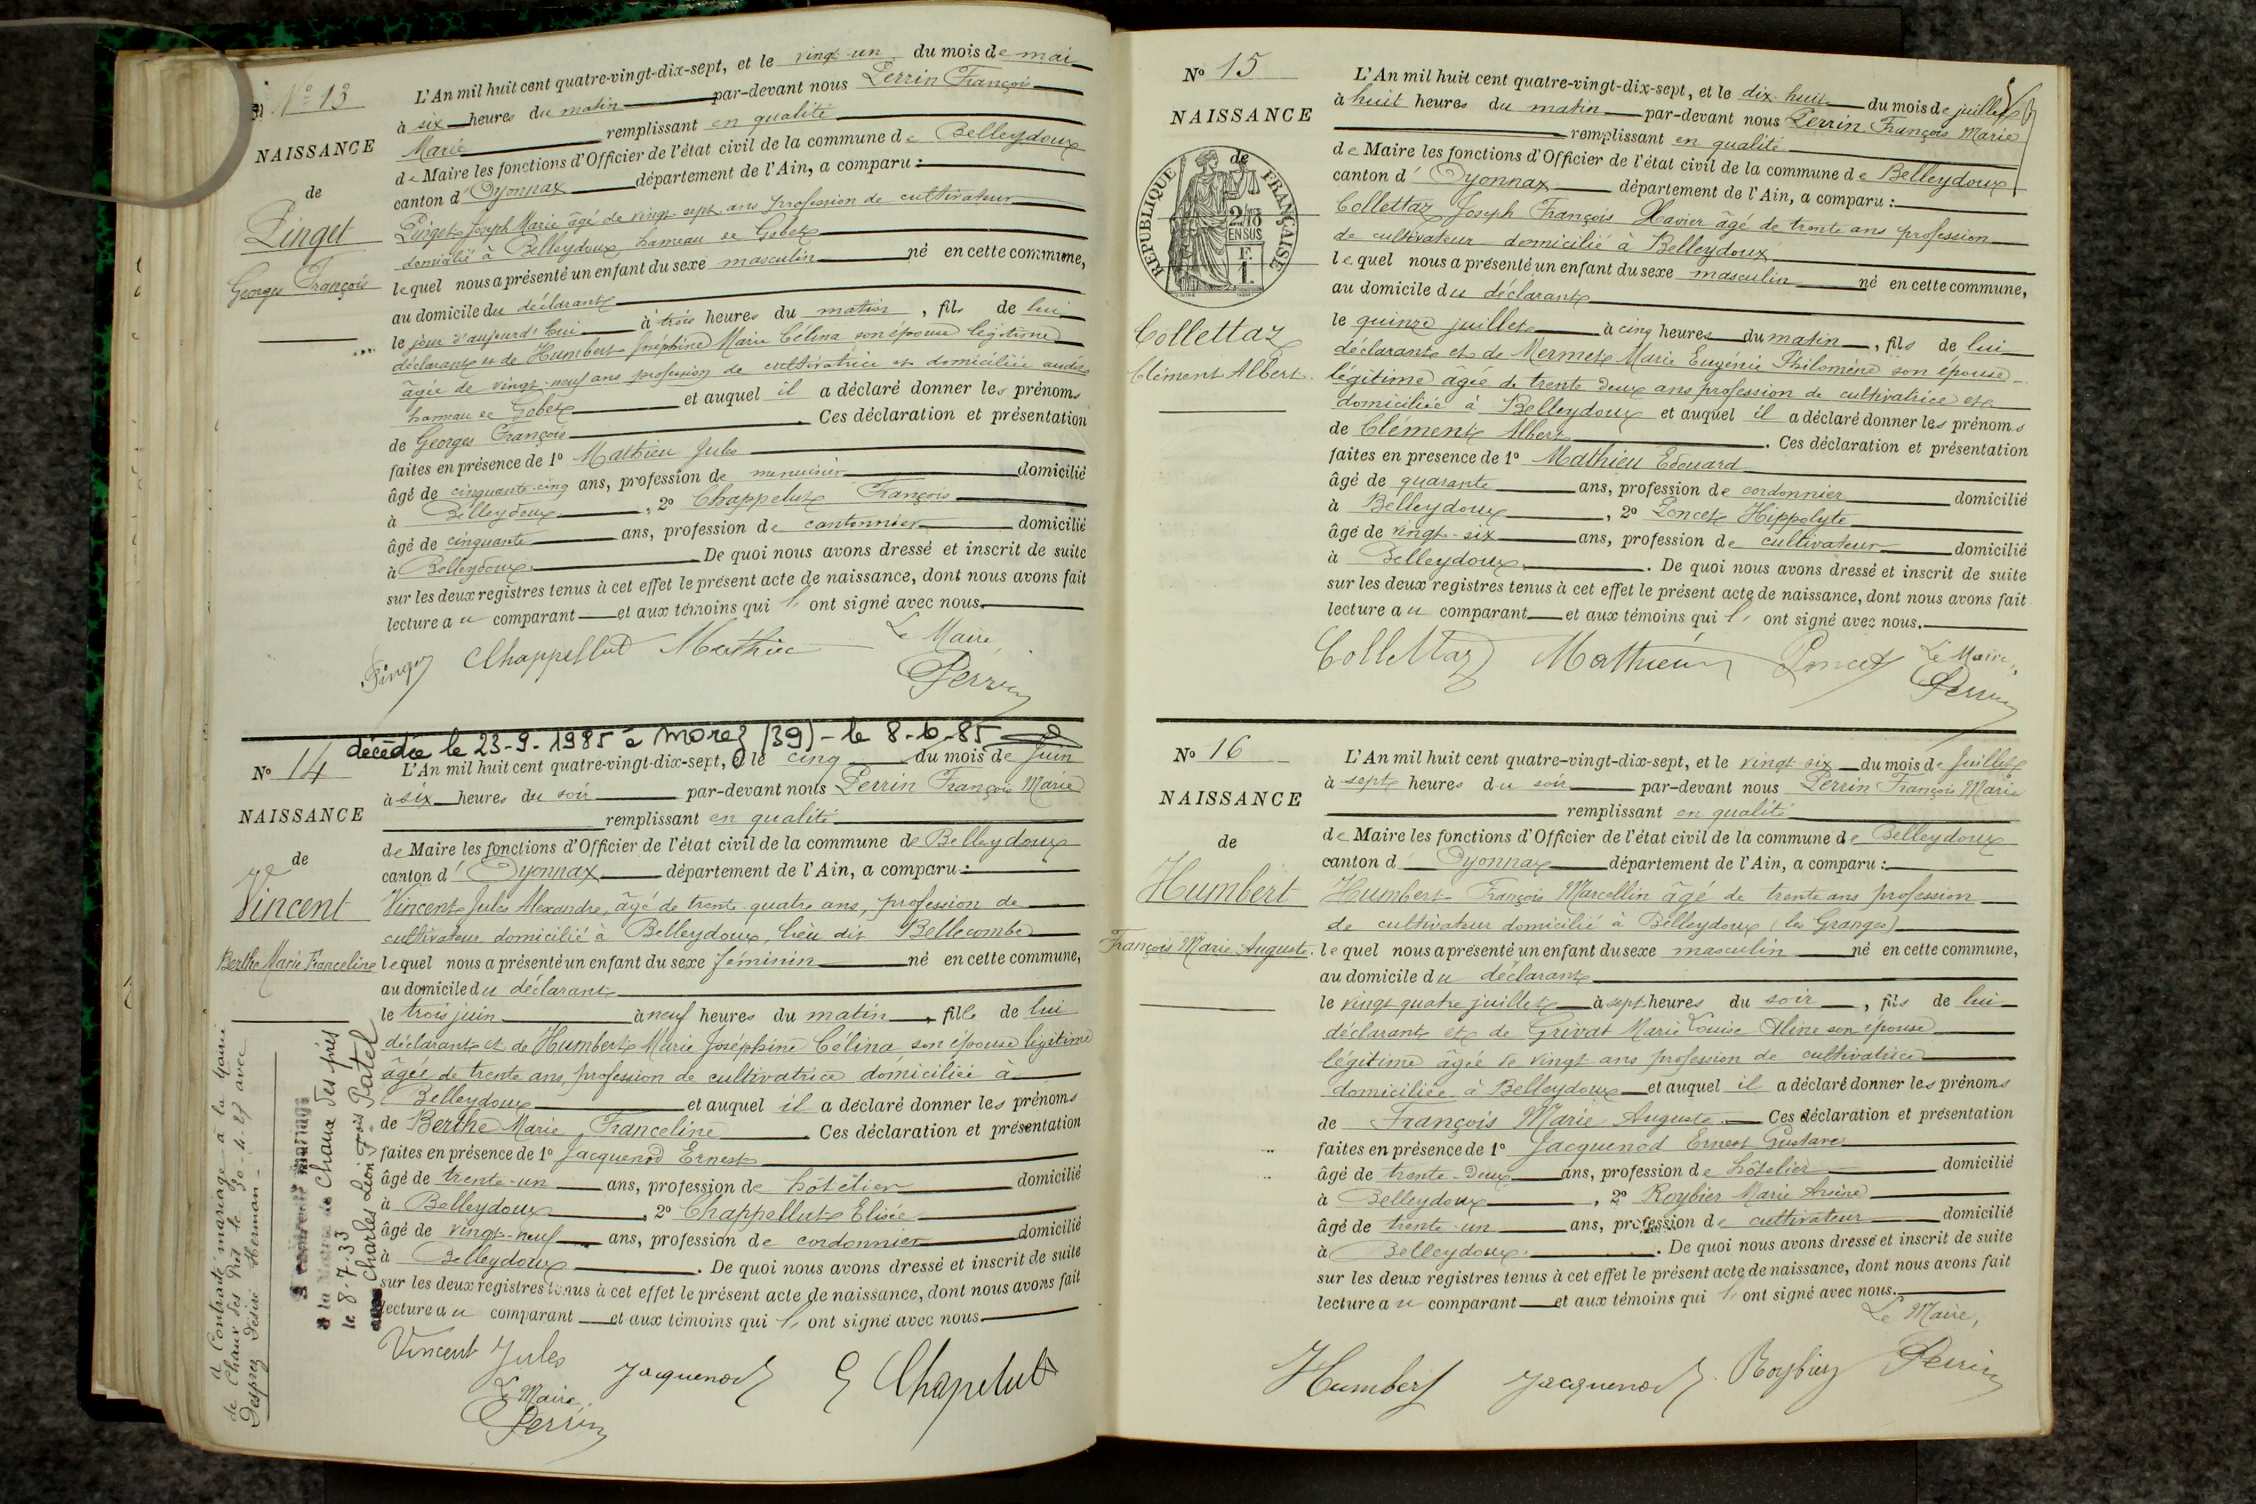 N° 13
NAISSANCE
de
Pinget
Georges François
L'An mil huit cent quatre-vingt-dix-sept, et le vingt-un du mois de mai
à six heures du matin par-devant nous Perrin François
Marie remplissant en qualité
de Maire les fonctions d'Officier de l'état civil de la commune de Belleydoux
canton d'Oyonnax département de l'Ain, a comparu :
Pinget Joseph Marie âgé de vingt sept ans profession de cultivateur
domicilié à Belleydoux hameau de Gobet
lequel nous a présenté un enfant du sexe masculin né en cette commune,
au domicile du déclarant
le jour d'aujourd'hui à trois heures du matin, fils de lui
déclarant et de Humbert Joséphine Marie Célina son épouse légitime
âgée de vingt-neuf ans profession de cultivatrice et domiciliée audit
hameau de Gobet et auquel il a déclaré donner les prénoms
de Georges François. Ces déclaration et présentation
faites en présence de 1° Mathieu Jules
âgé de cinquante-cinq ans, profession de menuisier domicilié
à Belleydoux, 2° Chappelut François
âgé de cinquante ans, profession de cantonnier domicilié
à Belleydoux. De quoi nous avons dressé et inscrit de suite
sur les deux registres tenus à cet effet le présent acte de naissance, dont nous avons fait
lecture au comparant et aux témoins qui l' ont signé avec nous.
Le Maire,
Pinget Chappellut Mathieu
Perrin
décédée le 23-9-1985 à Morez (39) - le 8-10-85
N° 14
NAISSANCE
de
Vincent
Berthe Marie Franceline
L'An mil huit cent quatre-vingt-dix-sept, et le cinq du mois de Juin
à six heures du soir par-devant nous Perrin François Marie
remplissant en qualité
de Maire les fonctions d'Officier de l'état civil de la commune de Belleydoux
canton d'Oyonnax département de l'Ain, a comparu :
Vincent Jules Alexandre, âgé de trente-quatre ans, profession de
cultivateur domicilié à Belleydoux, lieu dit Bellecombe
lequel nous a présenté un enfant du sexe féminin né en cette commune,
au domicile du déclarant
le trois juin à neuf heures du matin, fille de lui
déclarant et de Humbert Marie Joséphine Célina son épouse légitime
âgée de trente ans, profession de cultivatrice domiciliée à
Belleydoux et auquel il a déclaré donner les prénoms
de Berthe Marie Franceline. Ces déclaration et présentation
faites en présence de 1° Jacquenod Ernest
âgé de trente-un ans, profession de hôtelier domicilié
à Belleydoux, 2° Chappellut Elisée
âgé de vingt-neuf ans, profession de cordonnier domicilié
à Belleydoux. De quoi nous avons dressé et inscrit de suite
sur les deux registres tenus à cet effet le présent acte de naissance, dont nous avons fait
lecture au comparant et aux témoins qui l' ont signé avec nous
Vincent Jules
Jacquenod E Chapelut
Le Maire,
Perrin
A Contracté mariage à la Mairie
de Chaux des Prés le 30-4-27 avec
Desprez Désiré Herman
A contracté mariage
à la Mairie de Chaux des prés
le 8-7-33
avec Charles Léon Fois Patel
N° 15
NAISSANCE
de
RÉPUBLIQUE FRANÇAISE
2/10
EN SUS
F.
1.
Collettaz
Clément Albert.
L'An mil huit cent quatre-vingt-dix-sept, et le dix-huit du mois de juillet
à huit heures du matin par-devant nous Perrin François Marie
remplissant en qualité
de Maire les fonctions d'Officier de l'état civil de la commune de Belleydoux
canton d'Oyonnax département de l'Ain, a comparu :
Collettaz Joseph François Xavier âgé de trente ans profession
de cultivateur domicilié à Belleydoux
lequel nous a présenté un enfant du sexe masculin né en cette commune,
au domicile du déclarant
le quinze juillet à cinq heures du matin, fils de lui
déclarant et de Mermet Marie Eugénie Philomène son épouse
légitime âgée de trente deux ans profession de cultivatrice et
domiciliée à Belleydoux et auquel il a déclaré donner les prénoms
de Clément Albert. Ces déclaration et présentation
faites en presence de 1° Mathieu Edouard
âgé de quarante ans, profession de cordonnier domicilié
à Belleydoux, 2° Poncet Hippolyte
âgé de vingt-six ans, profession de cultivateur domicilié
à Belleydoux. De quoi nous avons dressé et inscrit de suite
sur les deux registres tenus à cet effet le présent acte de naissance, dont nous avons fait
lecture au comparant et aux témoins qui l' ont signé avec nous.
Collettaz Mathieu Poncet Le Maire,
Perrin
N° 16
NAISSANCE
de
Humbert
François Marie Auguste.
L'An mil huit cent quatre-vingt-dix-sept, et le vingt-six du mois de Juillet
à sept heures du soir par-devant nous Perrin François Marie
remplissant en qualité
de Maire les fonctions d'Officier de l'état civil de la commune de Belleydoux
canton d'Oyonnax département de l'Ain, a comparu :
Humbert François Marcellin âgé de trente ans profession
de cultivateur domicilié à Belleydoux (les Granges)
lequel nous a présenté un enfant du sexe masculin né en cette commune,
au domicile du déclarant
le vingt quatre juillet à sept heures du soir, fils de lui
déclarant et de Grivat Marie Louise Aline son épouse
légitime âgée de vingt ans profession de cultivatrice
domiciliée à Belleydoux et auquel il a déclaré donner les prénoms
de François Marie Auguste. Ces déclaration et présentation
faites en présence de 1° Jacquenod Ernest Gustave
âgé de trente-deux ans, profession de hôtelier domicilié
à Belleydoux, 2° Roybier Marie Arsène
âgé de trente-un ans, profession de cultivateur domicilié
à Belleydoux. De quoi nous avons dressé et inscrit de suite
sur les deux registres tenus à cet effet le présent acte de naissance, dont nous avons fait
lecture au comparant et aux témoins qui l' ont signé avec nous.
Le Maire,
Humbert Jacquenod Roybier Perrin